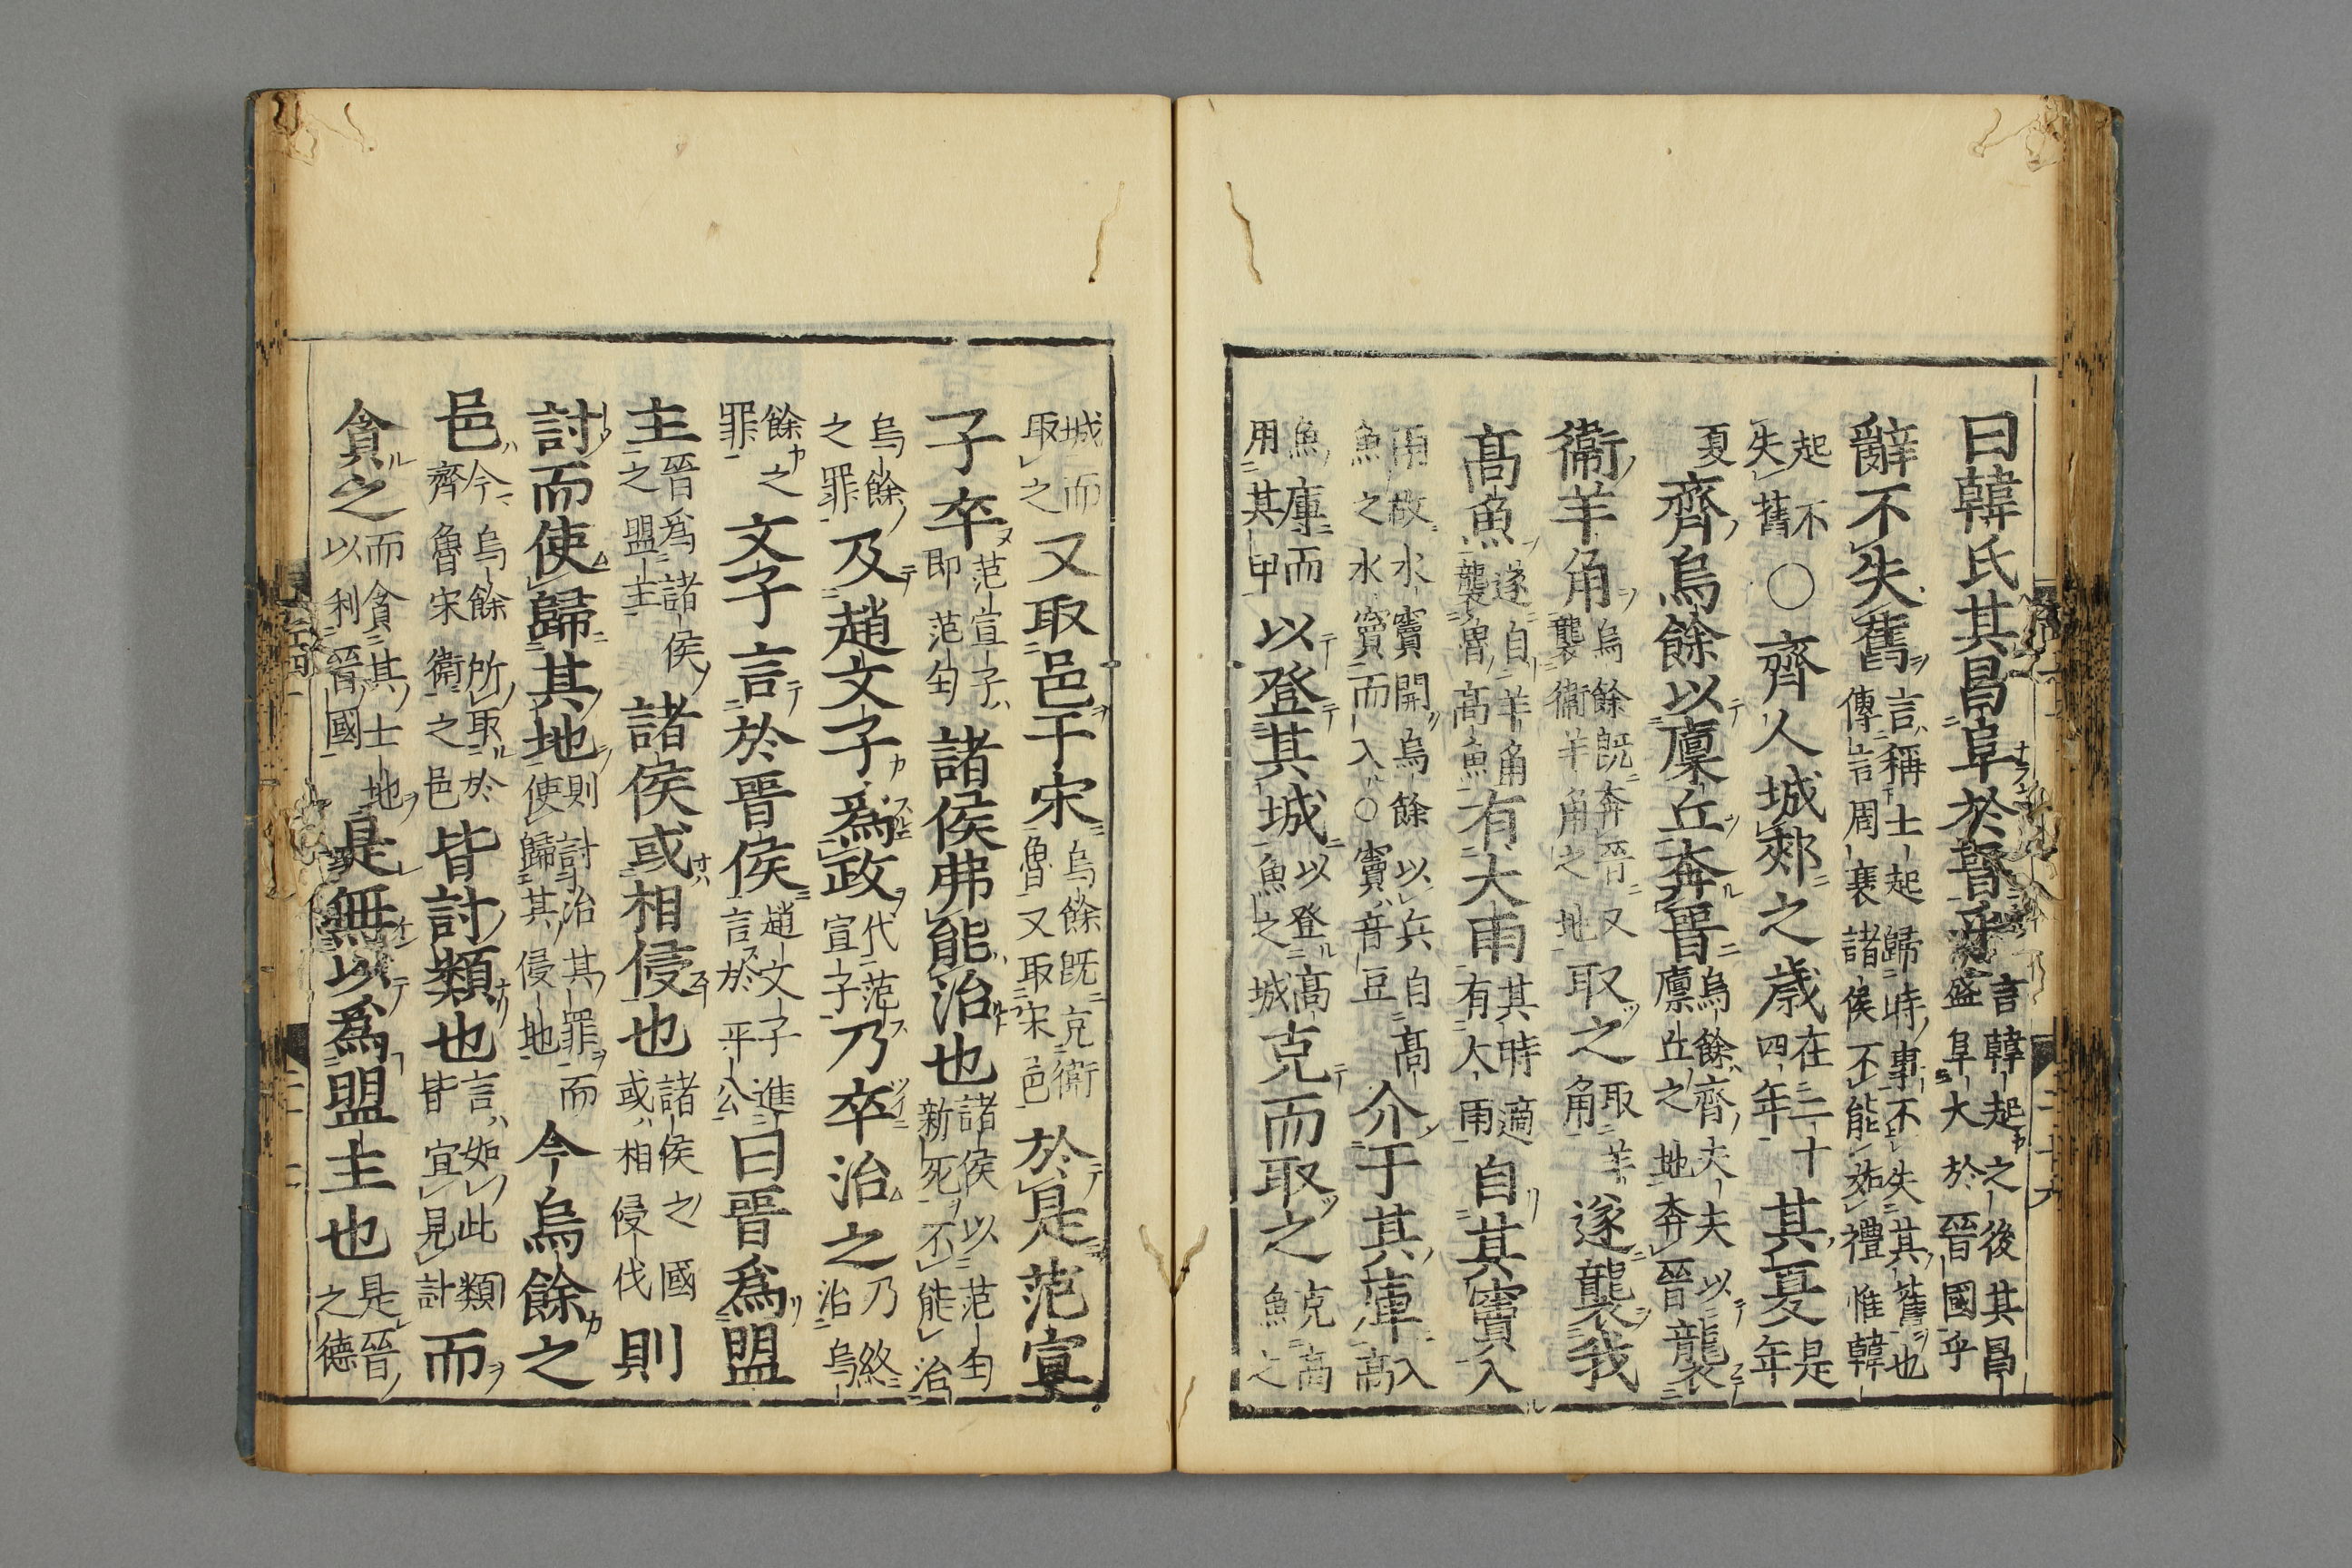 曰韓氏其昌阜於晉乎言韓起之後其昌盛阜大於晉國乎
辭不失舊言稱士起歸時事不失其舊也傳言周衰諸侯不能如禮惟韓
起不失舊〇齊人城郟之歲在二十四年其夏是年
夏齊烏餘以廩丘奔晉烏餘齊大夫以廩丘之地奔晉襲
衞羊角烏餘既奔晉又襲衞羊角之地取之取羊角遂襲我
高魚遂自羊角襲魯高魚有大雨其時適有大雨自其竇入
雨故水竇開烏餘以兵自高魚之水竇而入〇竇音豆介于其庫入高
魚庫而用其甲以登其城以登高魚之城克而取之克高魚之
城而取之又取邑于宋烏餘既克衞魯又取宋邑於是范宣
子卒范宣子即范匄諸侯弗能治也諸侯以范匄新死不能治
烏餘之罪及趙文子爲政代范宣子乃卒治之乃終治烏
餘之罪文子言於晉侯趙文子進言於平公曰晉爲盟
主晉爲諸侯之盟主諸侯或相侵也諸侯之國或相侵伐則
討而使歸其地則討治其罪而使歸其侵地今烏餘之
邑今烏餘所取於齊魯宋衞之邑皆討類也言如此類皆宜見討而
貪之而貪其土地以利晉國是無以爲盟主也是晉之德